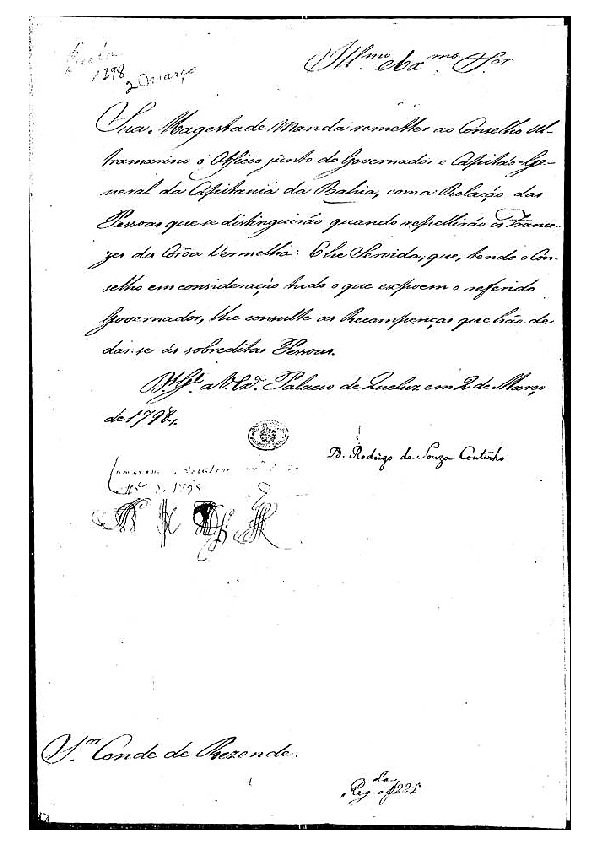 1798
2 Março
Ill.mo e Ex.mo S.or
Sua Magestade Manda remetter ao Conselho Ul-
tramarino o Officio junto do Governador e Capitaõ Ge-
neral da Capitania da Bahia, com a Relaçaõ das
Pessoas que se distinguiraõ quando repelliraõ os France-
zes da Corôa Vermelha: E he Servida, que, tendo o Con-
selho em consideraçaõ tudo o que expoem o referido
Governador, lhe consulte as Recompenças que haõ de
dar-se ás sobreditas Pessoas.
D.s G.e a V. Ex.a Palacio de Queluz em 2 de Março
de 1798,,
D. Rodrigo de Souza Coutinho
de 1798
S.or Conde de Rezende.
Reg.da a f 225